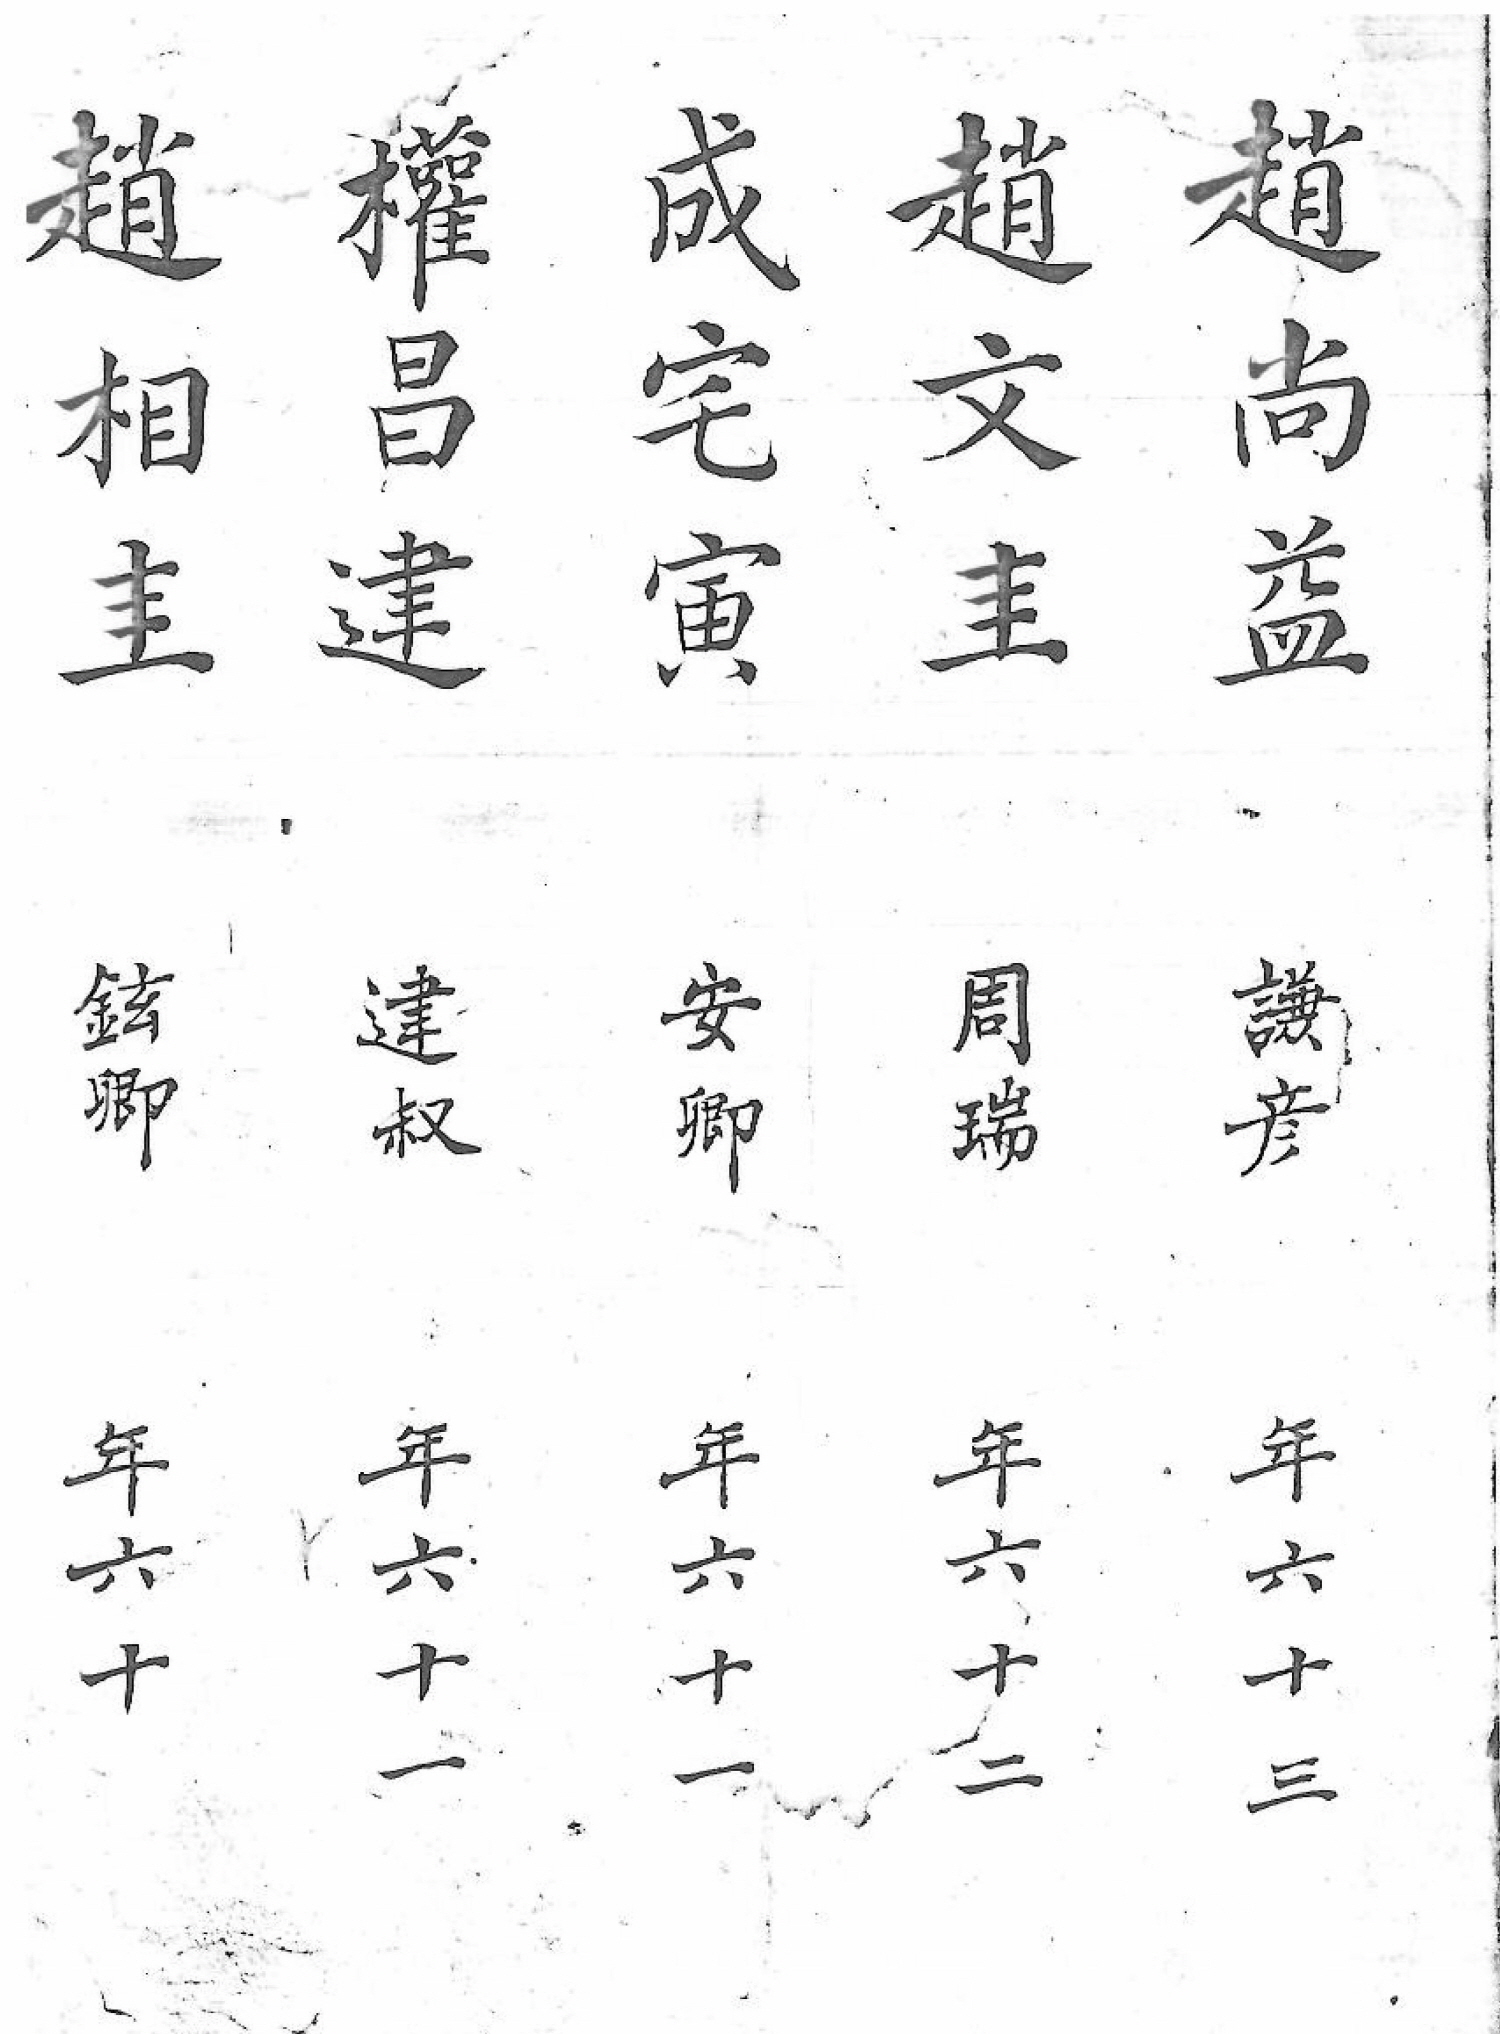 趙尚益 謙彦 年六十三
趙文圭 周瑞 年六十二
成宅寅 安卿 年六十一
權昌建 建叔 年六十一
趙相圭 鉉卿 年六十